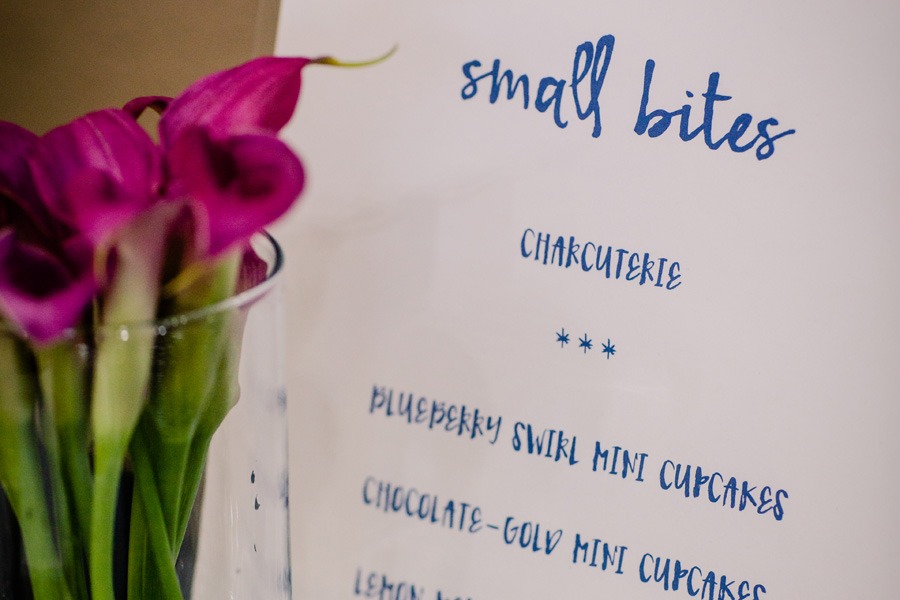 small bites
CHARCUTERIE
***
BLUEBERRY SWIRL MINI CUPCAKES
CHOCOLATE-GOLD MINI CUPCAKES
LEMON